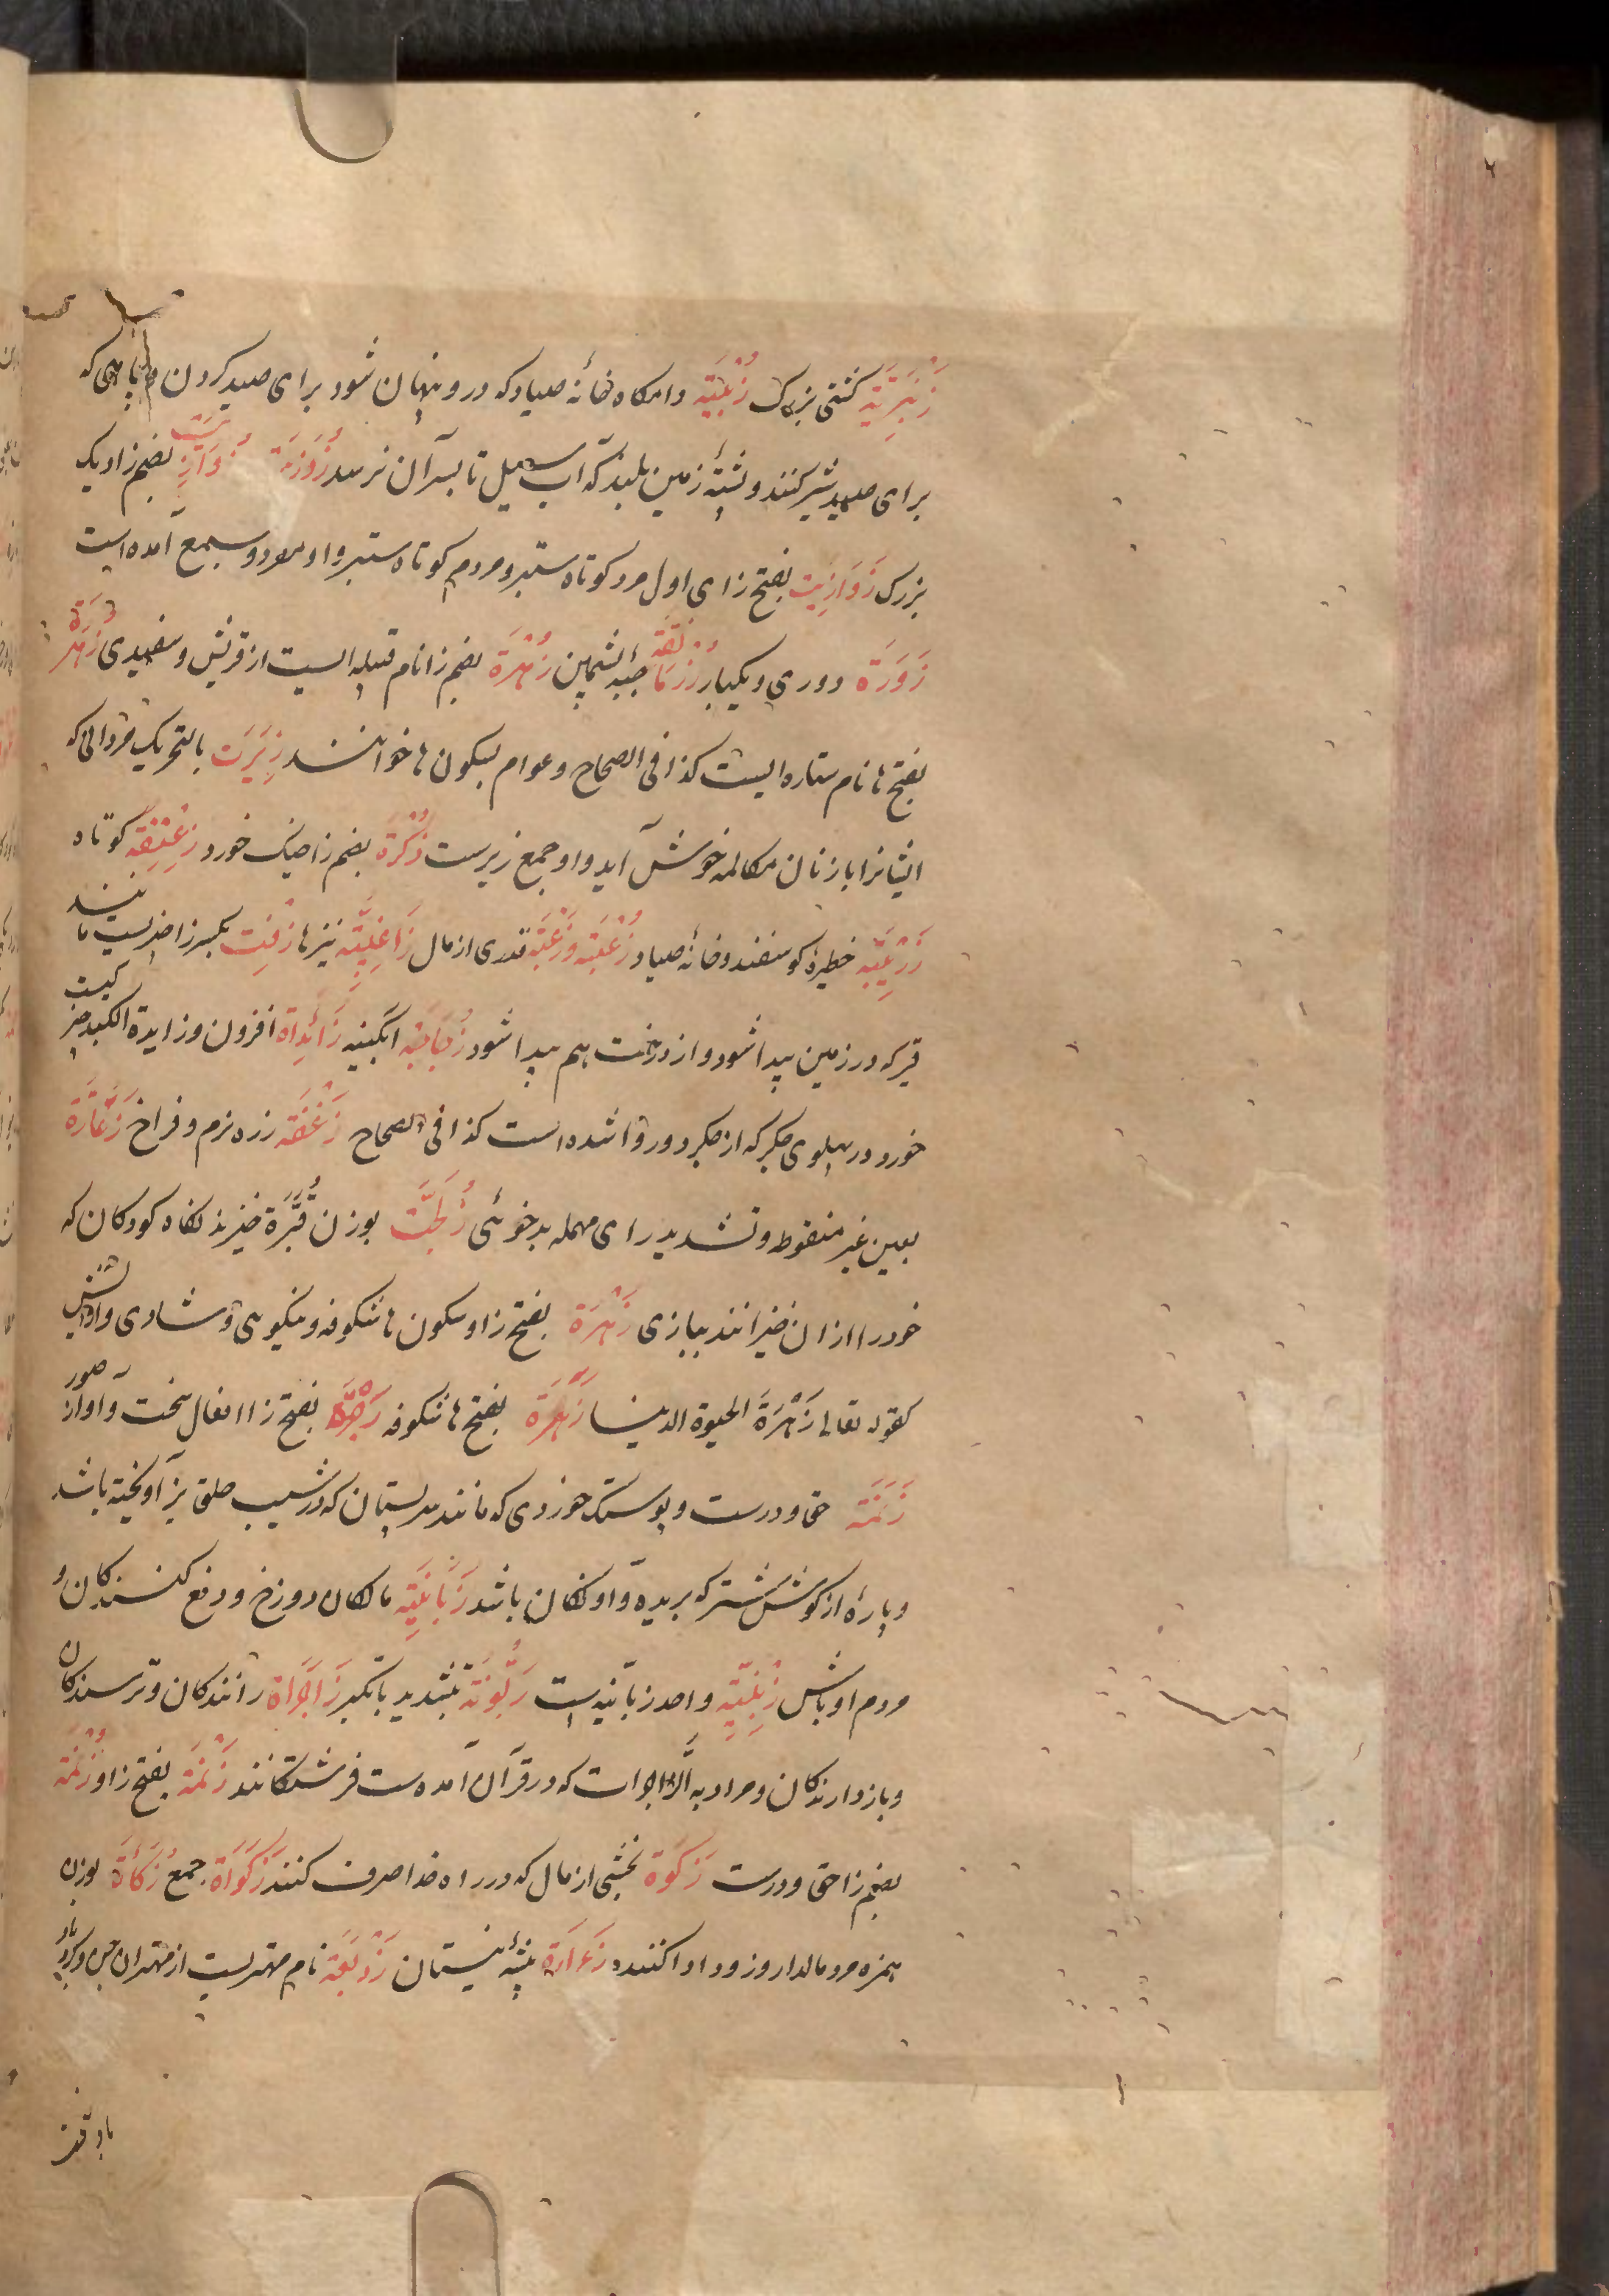 زَنْبَرِیَّة کشتی بزرک زُبْیَة دامکاه خانهٔ صیاد که درو پنهان شود برای صید کردن و جای که
برای صید شیر کنند و پشتهٔ زمین بلند که آب سیل تا بسر آن نرسد زُوَزِیَة زُوَازِیَت بضم زا دیک
بزرک زَوَازِیَت بفتح زای اول مرد کوتاه ستبر و مردم کوتاه ستبر و او مفرد و جمع آمده است
زَوَرَة دوری و یکبار زُرْمَانِقَة جبهٔ پشمین زُهْرَة بضم زا نام قبیله ایست از قریش و سفیدی زُهَرَة
بفتح ها نام ستاره ایست کذا فی الصحاح و عوام بسکون ها خوانند زِیَرَت بالتحریک مردانی که
ایشانرا با زنان مکالمه خوش آید و او جمع زیرست زُکْرَة بضم زا خیک خورد زِعْنِفَة کوتاه
زَرِیْبَة خطیرهٔ کوسفند و خانهٔ صیاد زُعْبَة وزَعْبَة قدری از مال زَاغِبِیَّة نیزها زِفْت بکسر زا چیزیست مانند
قیر که در زمین پیدا شود و از درخت هم پیدا شود زُجَاجَة ابکینه زَائِدَة افزون و زایدة الکبد چیزکیست
خورد در پهلوی جکر که از جکر دور وا شده است کذا فی الصحاح زَغْفَة زره نرم و فراخ زَعَارَّة
بعین غیر منقوطه و تشدید رای مهمله بدخوئی زُلَّجَت بوزن قُبَّرَة خیزیدنکاه کودکان که
خود را از ان خیزانند ببازی زَهْرَة بفتح زا و سکون ها شکوفه و نیکویی و شادی و ارایش
کقوله تعالی زَهْرَةَ الحیوة الدنیا زَهَرَة بفتح ها شکوفه زَجْرَة بفتح زا افعال سخت و آواز صور
زَنَمَة حق و درست و پوستک خوردی که مانند سر پستان که در شیب حلق بز آویخته باشد
و پارهٔ از کوش شتر که بریده و اونکان باشد زَبَانِیَة مالکان دوزخ و دفع کنندکان و
مردم اوباش زِبْنِیَة واحد زبانیه است زَبُّونَة بتشدید با تکبر زَاجِرَاة رانندکان و ترسندکان
و بازدارندکان و مراد به الزّاجرات که در قرآن آمده ست فرشتکانند زَنْمَة بفتح زا و زُنْمَة
بضم زا حق و درست زَکٰوة بخشی از مال که در راه خدا صرف کنند زَکَوَاة جمع زُکَأَة بوزن
همزه مرد مالدار و زود ادا کننده زَءَارَة بیشهٔ نیستان زَوْبَعَة نام مهتریست از مهتران جن و کرد باد
باد قنه